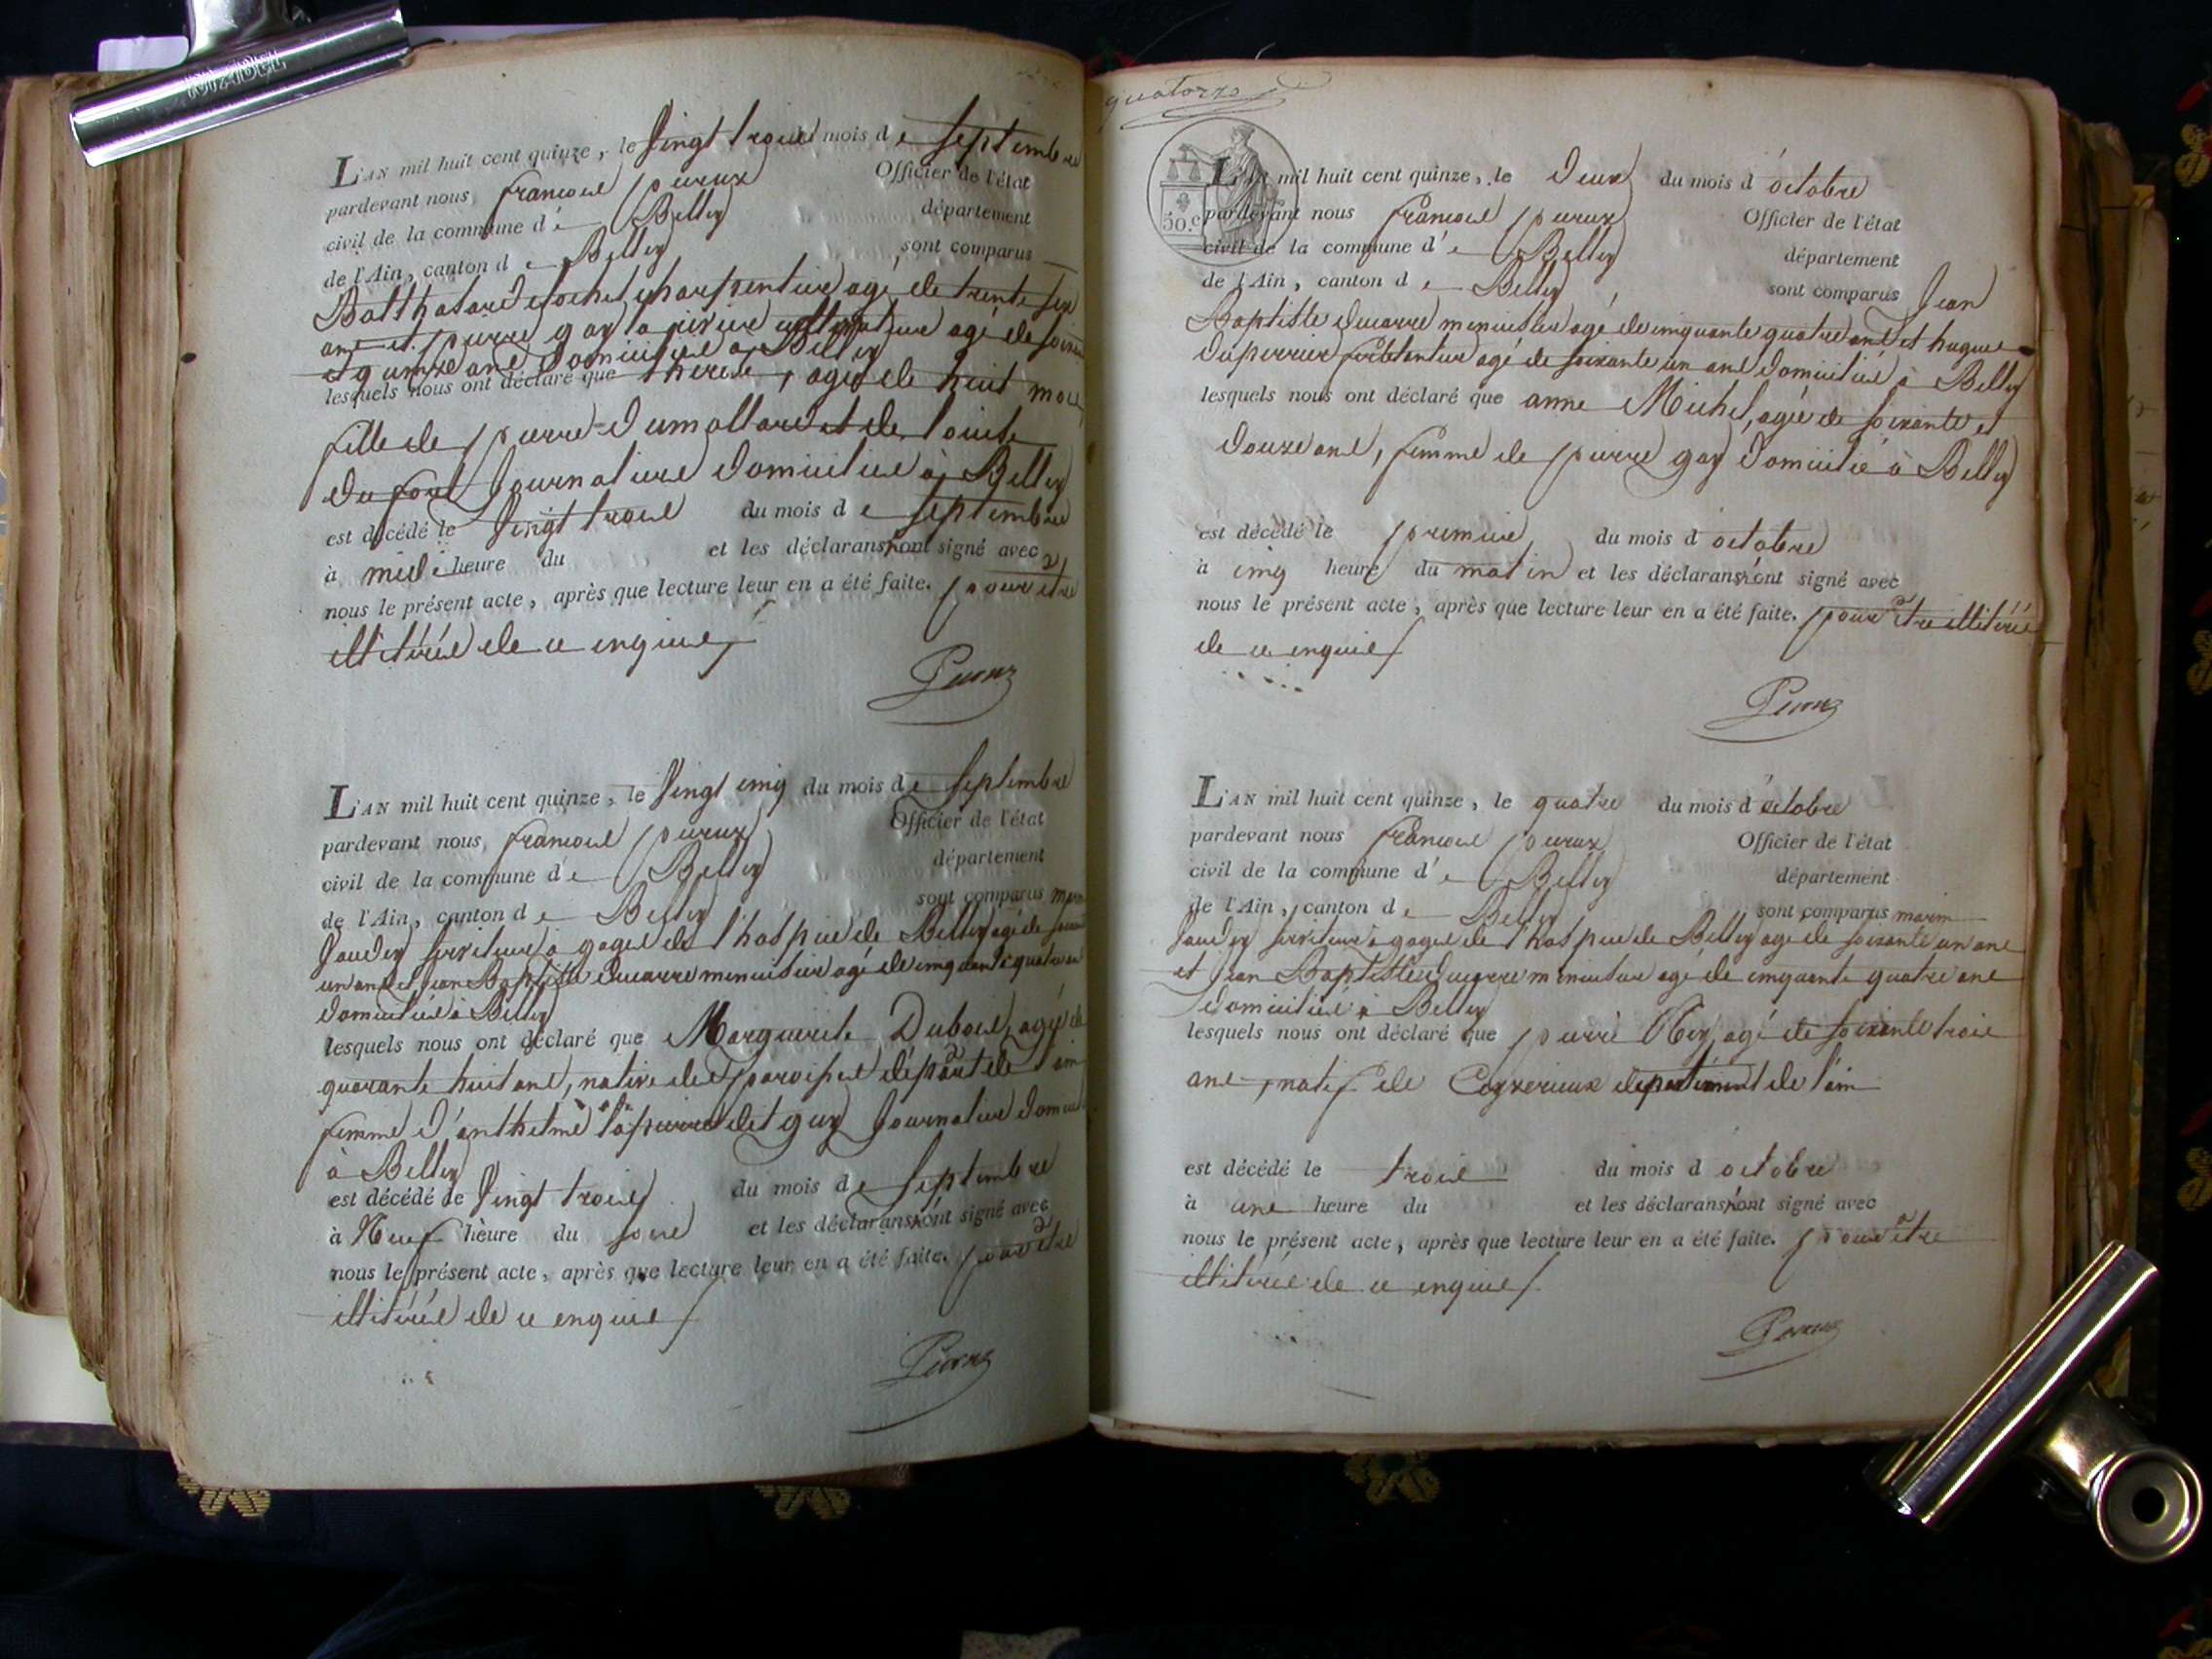 L'AN mil huit cent quinze, le vingt trois du mois de septembre
pardevant nous françois peroux Officier de l'état
civil de la commune d'e Belley département
de l'Ain, canton de Belley sont comparus
Balthazard charpentier agé de trente six
ans et pierre gay agé de
et quinze ans domiciliés à Belley
lesquels nous ont déclaré que therese, agée de huit mois
fille de pierre Dumollard et de louise
Dufour Journaliers domiciliés à Belley
est décédé le vingt trois du mois de septembre
à midi heure du et les déclarans n'ont signé avec
nous le présent acte, après que lecture leur en a été faite. pour être
illitérés de ce enquis
L'AN mil huit cent quinze, le vingt cinq du mois de septembre
pardevant nous françois peroux Officier de l'état
civil de la commune d'e Belley département
de l'Ain, canton de Belley sont comparus
serviteur à gages de l'hospice de Belley agé de
un ans et jean Baptiste Ducarre menuisier agé de cinquante quatre ans
domiciliés à Belley
lesquels nous ont déclaré que Marguerite Dubois, agée de
quarante huit ans, native de départ de l'ain
femme d'anthelme lapierre dit guy Journalier
à Belley
est décédé le vingt trois du mois de septembre
à Neuf heure du soir et les déclarans n'ont signé avec
nous le présent acte, après que lecture leur en a été faite. pour être
illitérés de ce enquis
quatorze
30.c
L'AN mil huit cent quinze, le Deux du mois d'octobre
pardevant nous françois peroux Officier de l'état
civil de la commune d'e Belley département
de l'Ain, canton de Belley sont comparus Jean
Baptiste Ducarre menuisier agé de cinquante quatre ans et hugues
Duperrier agé de soixante un ans domiciliés à Belley
lesquels nous ont déclaré que anne Michel, agée de soixante et
douze ans, femme de pierre gay domicilié à Belley
est décédé le premier du mois d octobre
à cinq heure du matin et les déclarans n'ont signé avec
nous le présent acte, après que lecture leur en a été faite. pour être illitérés
de ce enquis
L'AN mil huit cent quinze, le quatre du mois d'octobre
pardevant nous françois peroux Officier de l'état
civil de la commune d'e Belley département
de l'Ain, canton de Belley sont comparus marin
serviteur à gages de l'hospice de Belley agé de soixante un ans
et jean Baptiste Ducarre menuisier agé de cinquante quatre ans
domiciliés à Belley
lesquels nous ont déclaré que pierre Rey, agé de soixante trois
ans, natif de Ceyzerieux departement de l'ain
est décédé le trois du mois d octobre
à une heure du et les déclarans n'ont signé avec
nous le présent acte, après que lecture leur en a été faite. pour être
illitérés de ce enquis